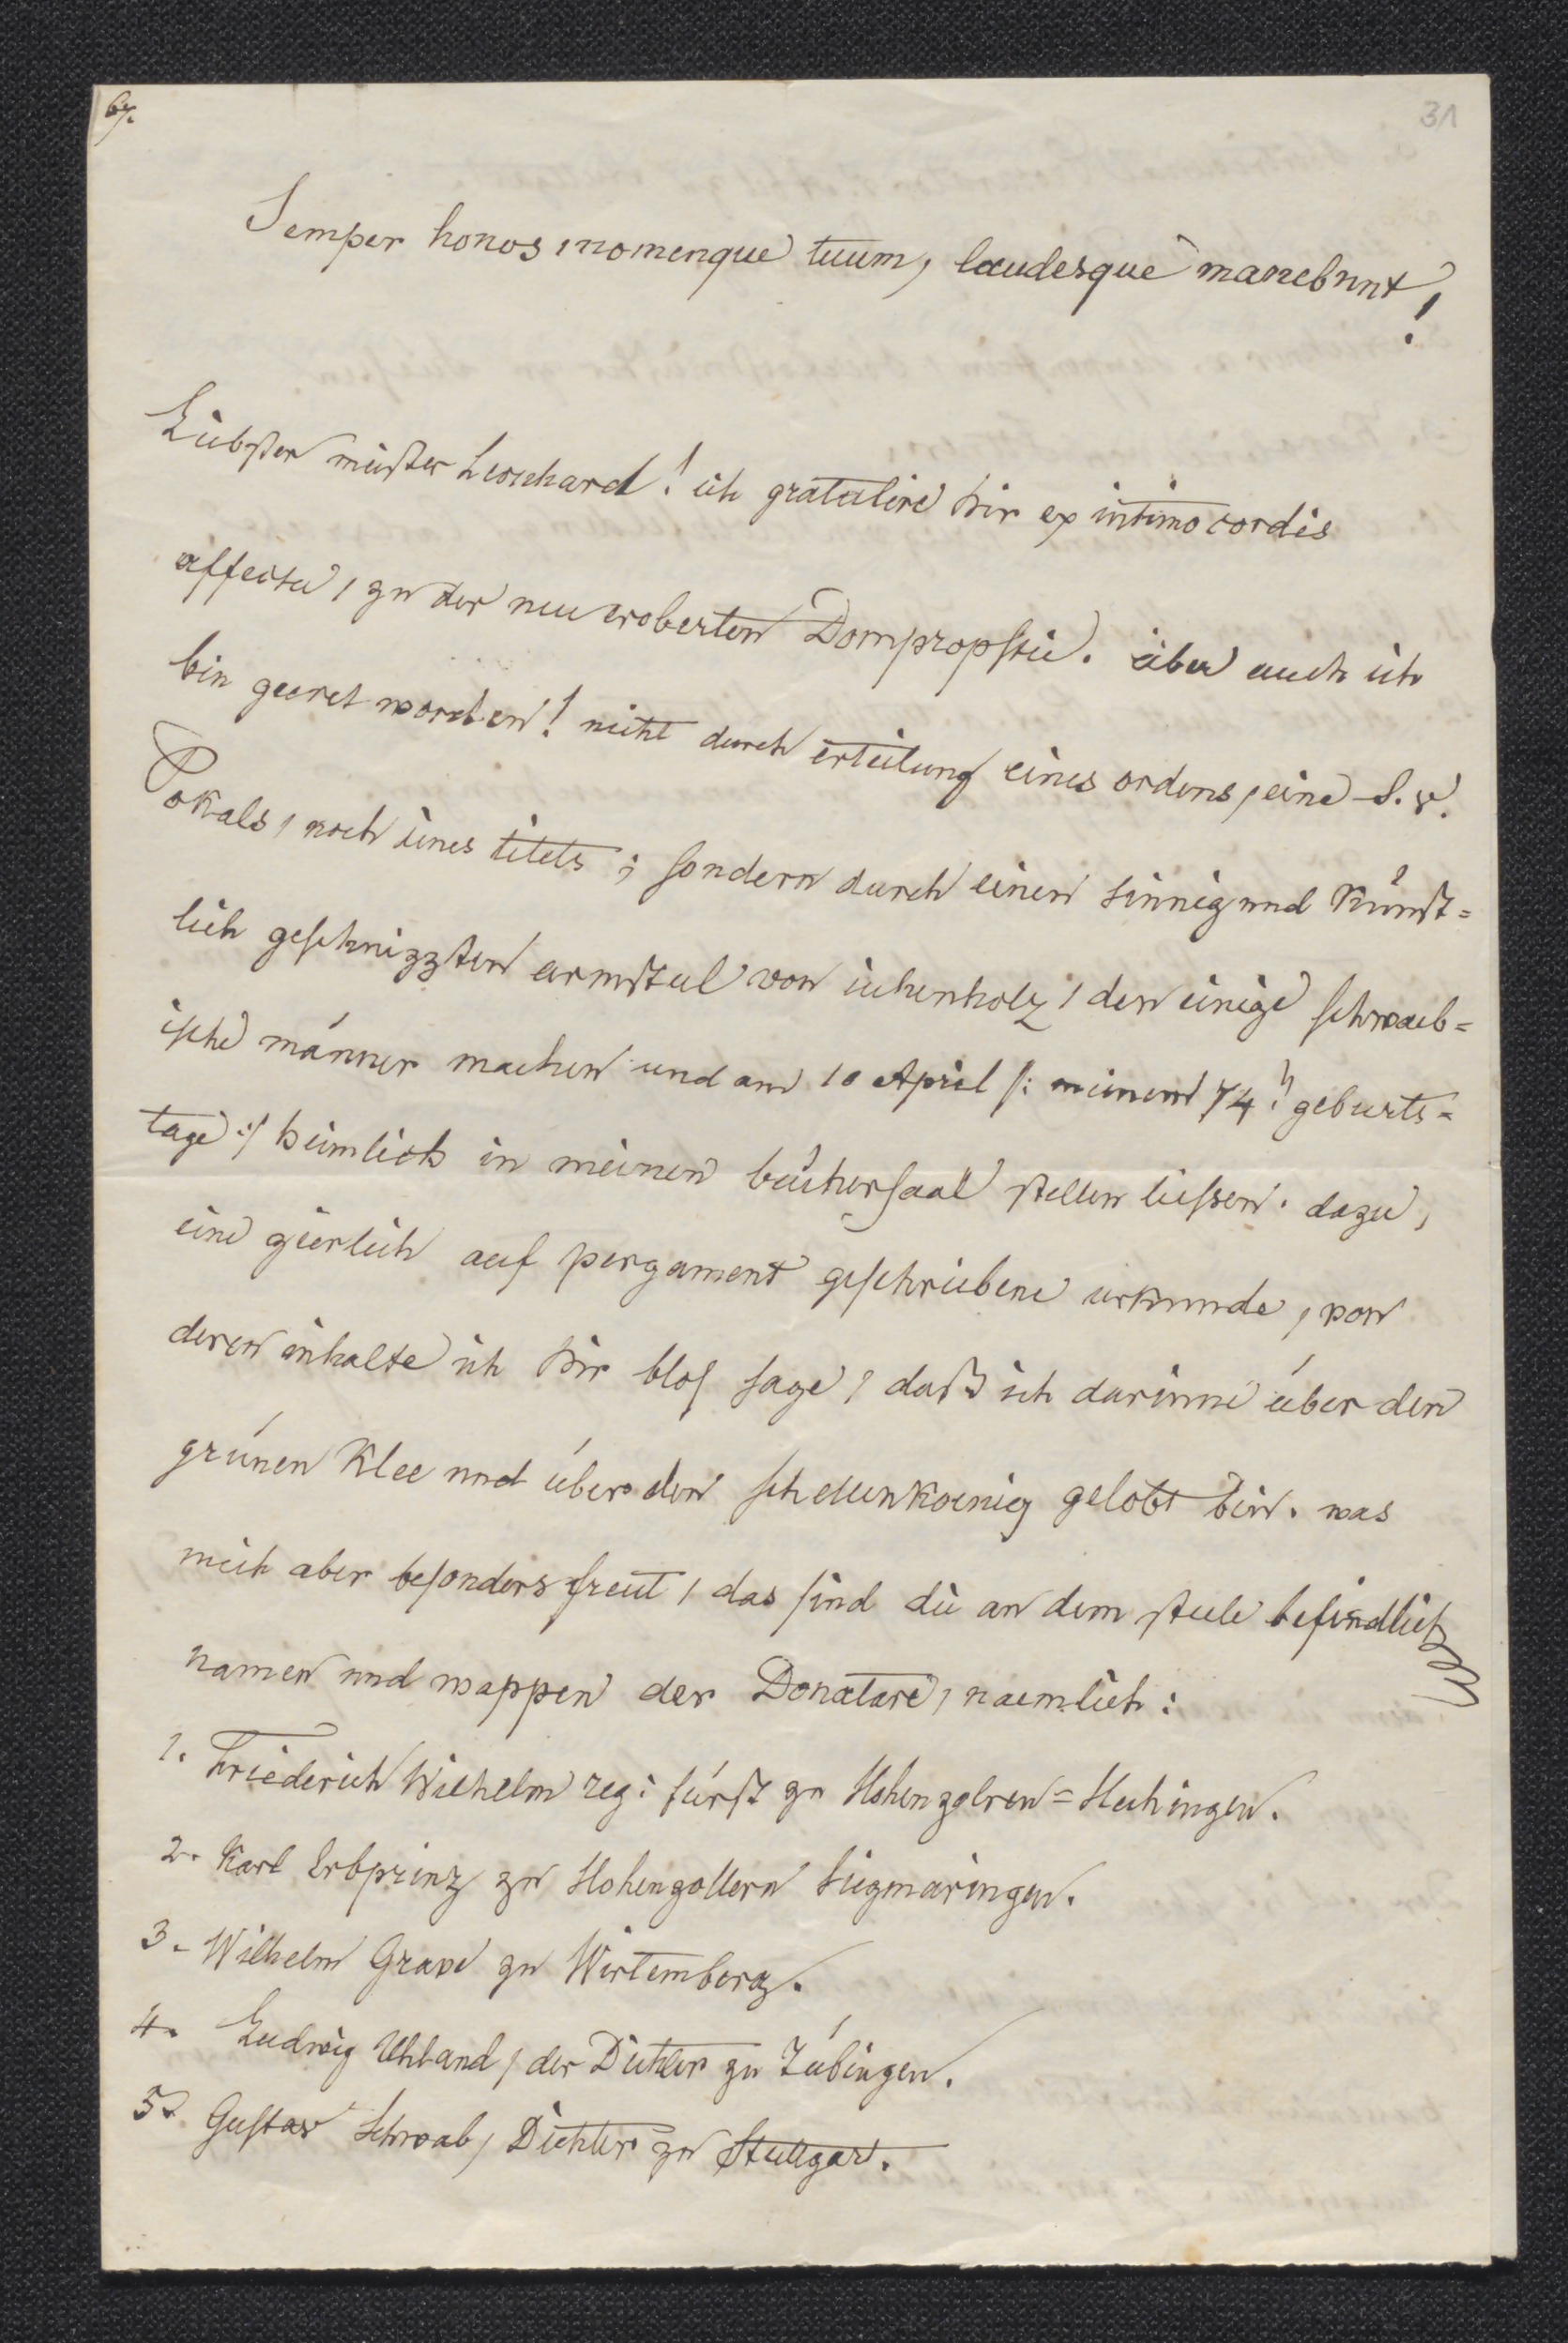 67.
31
Semper honos, nomenque tuum, laudesque manebunt!
Liebster meister Leonhard! ich gratulire dir ex intimo cordis
affectu, zu der neu eroberten Dompropstei. aber auch ich
bin geeret worden! nicht durch erteilung eines ordens, eines S. v.
Pokals, noch eines titels; sondern durch einen sinnig und künst=
lich geschnizzten armstul von eichenholz, den einige schwaeb=
ische männer machen und am 10 April /: meinem 74.n geburts=
tage :/ heimlich in meinen büchersaal stellen liessen. dazu,
eine zierlich auf pergament geschriebene urkunde, von
deren inhalte ich dir blos sage, daß ich darinne über den
grünen Klee und über den schellenkoenig gelobt bin. was
mich aber besonders freut, das sind die an dem stule befindlich
namen und wappen der Donatare, naemlich:
1. Friederich Wilhelm reg: fürst zu Hohenzolren=Hechingen.
2. Karl Erbprinz zu Hohenzollern Siegmaringen.
3. Wilhelm Grave zu Wirtemberg.
4. Ludwig Uhland, der Dichter zu Tübingen.
5. Gustav Schwab, Dichter zu Stuttgart.